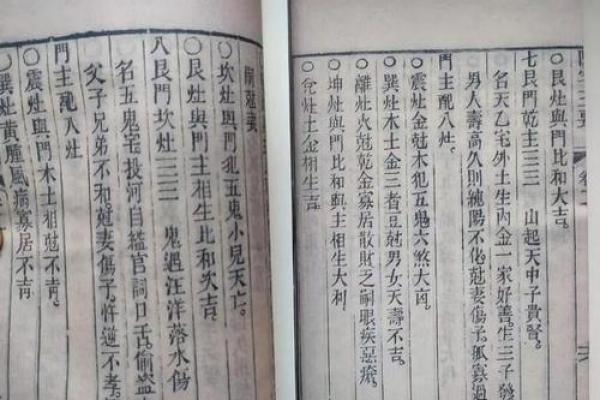 ○艮灶與門比和大吉。
七艮門乾主三三　山起天中子貴賢。
名天乙宅外土生內金一家好善。生三子發
男人壽高久則純陽不化尅妻傷子。孤寡過
門主配八灶。
○震灶金尅木犯五鬼六煞大凶。
○巽灶木土金三者互尅男女夭壽不吉。
○離灶火尅乾金寡居散財乏嗣眼疾惡瘡。
○坤灶與門比和與主相生大利
○兌灶土金相生吉。
○坎灶與門犯五鬼小兒夭亡。
○艮灶與門主相生比和次吉。
八艮門坎灶三三　鬼遇汪洋落水傷
名五鬼宅投河自縊官詞口舌。偷盜
父子兄弟不和尅妻傷子。忤逆不孝
門主配八灶
○震灶與門木土相尅不吉。
○巽灶黃腫風病寡居不吉